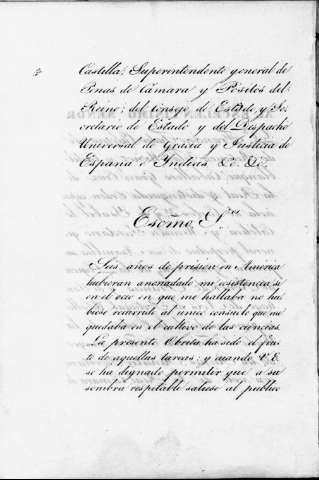 Castilla; Superentendente general de
Penas de Cámara y Pósitos del
Reino; del Consejo de Estado, y Se-
cretario de Estado y del Despacho
Universal de Gracia y Justicia de
España é Indias &c. &c.
Escmo. S.or
Seis años de prision en América
hubieran anonadado mi ecsistencia si
en el ocio en que me hallaba no hu-
biese recurrido al único consuelo que me
quedaba en el cultivo de las ciencias.
La presente Obrita ha sido el fru-
to de aquellas tareas: y cuando V. E.
se ha dignado permitir que a su
sombra respetable saliese al público